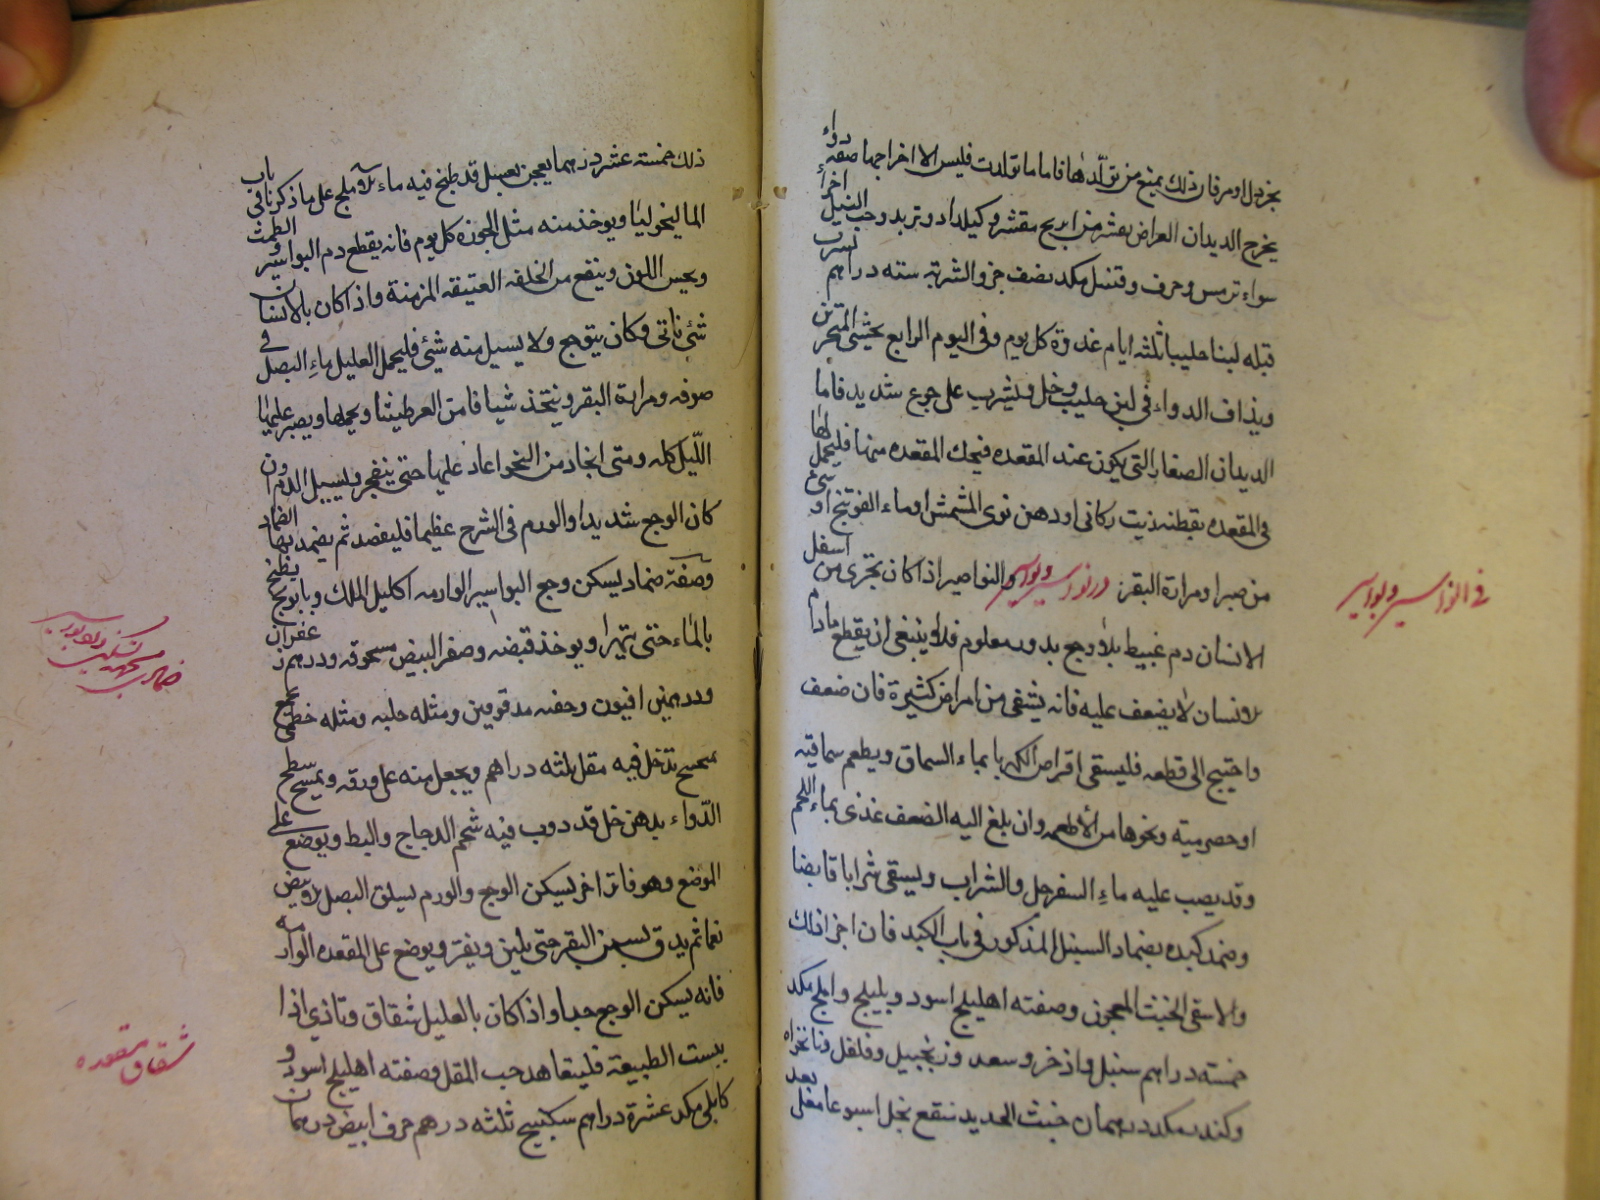 بخردل او مرفان ذلك يمنع من تولّدها فاما ما تولدت فليس الا اخراجها صفة دواء
يخرج الديدان العراض يقشر من ابرنج مقشر وكيلدارو وتربد وحب النيل اخراء
سواء ترمس وحرف وقنبيل مكد نصف جزو الشربة ستة دراهم
قبله لبنا حليبا ثلثه ايام غدوة كل يوم وفى اليوم الرابع
ويذاف الدواء فى لبن حليب وخل ويشرب على جوع شديد فاما
الديدان الصغار التى يكون عند المقعده فيحك المقعده منها فليحمل لها
فى المقعده بقطنه زيت ركابى او دهن نوى المشمش او ماء الفوتنج او شئ
من صبر او مرارة البقر در نواسير وبواسير والنواصير اذا كان يجرى من اسفل
الانسان دم غبيط بلا وجع بدور معلوم فلا ينبغى ان يقطع مادام
الانسان لا يضعف عليه فانه يشفى من امراض كثيرة فان ضعف
واحتيج الى قطعه فليسقى اقراص الكهربا بماء السماق ويطعم سماقيه
او حصرميته ونحوها من الأطعمه وان بلغ اليه الضعف غذى بماء اللحم
وقد يصب عليه ماءِ السفرجل والشراب ويسقى شرابا قابضا
وضمد كبده بضماد السنبل المذكور فى باب الكبد فان اجزا ذلك
والا سقى الخبث المعجون وصفته اهليلج اسود وبليلج واملج مكد
خمسته دراهم سنبل واذخر وسعد وزنجبيل وفلفل ونانخواه
وكندر مكد درهمان خبث الحديد منقع بخل اسبوعا مغلى بعد
فى النواسير وبواسير
ذلك خمسته عشر درهما يعجن بعسل قد طبخ فيه ماء الاملج على ما ذكرنا فى باب
الماليخوليا ويوخذ منه مثل الجوزه كل يوم فانه يقطع دم البواسير والطمث
ويحسن اللون وينفع من الخلفه العتيقه المزمنة واذا كان بالانسان
شئ ناتى وكان يتوجع ولا يسيل منه شئ فليحمل العليل ماءِ البصل فى
صوفه ومرارة البقر ويتخذ شيافا من العرطنيثا ويحملها ويصبر عليها
اللّيل كله ومتى انجاد من النخوا عاد عليها حتى ينفجر ويسيل الدم وان
كان الوجع شديدا والورم فى الشرج عظيما فليفصد ثم يضمد بهذا الضماد
وصفة ضماد ليسكن وجع البواسير الوارمه اكاليل الملك وبابونج يطبخ
بالماء حتى يتهرا ويوخذ قبضه وصفر البيض مسحوقه ودرهم زعفران
ودرهمين افيون وحفنه مدقوقين ومثله حلبه ومثله خطمى
تدخل فيه مقل ثلثه دراهم ويجعل منه على ورقه ويمسح سطح
الدّواء بدهن خل قد دوب فيه شحم الدجاج والبط ويوضع على
الموضع وهو فاتر اخر ليسكن الوجع والورم يسلق البصل الابيض
نعما ثم يدق بسمن البقر حتى يلين ويفتر ويوضع على المقعده الوارمه
فانه يسكن الوجع جدا واذا كان بالعليل شقاق وتاذى اذا
يبست الطبيعة فليتعاهد حب المقل وصفته اهليلج اسود و
كابلى مكد عشرة دراهم سكبينج ثلثه درهم حرف ابيض درهمان
شقاق مقعده